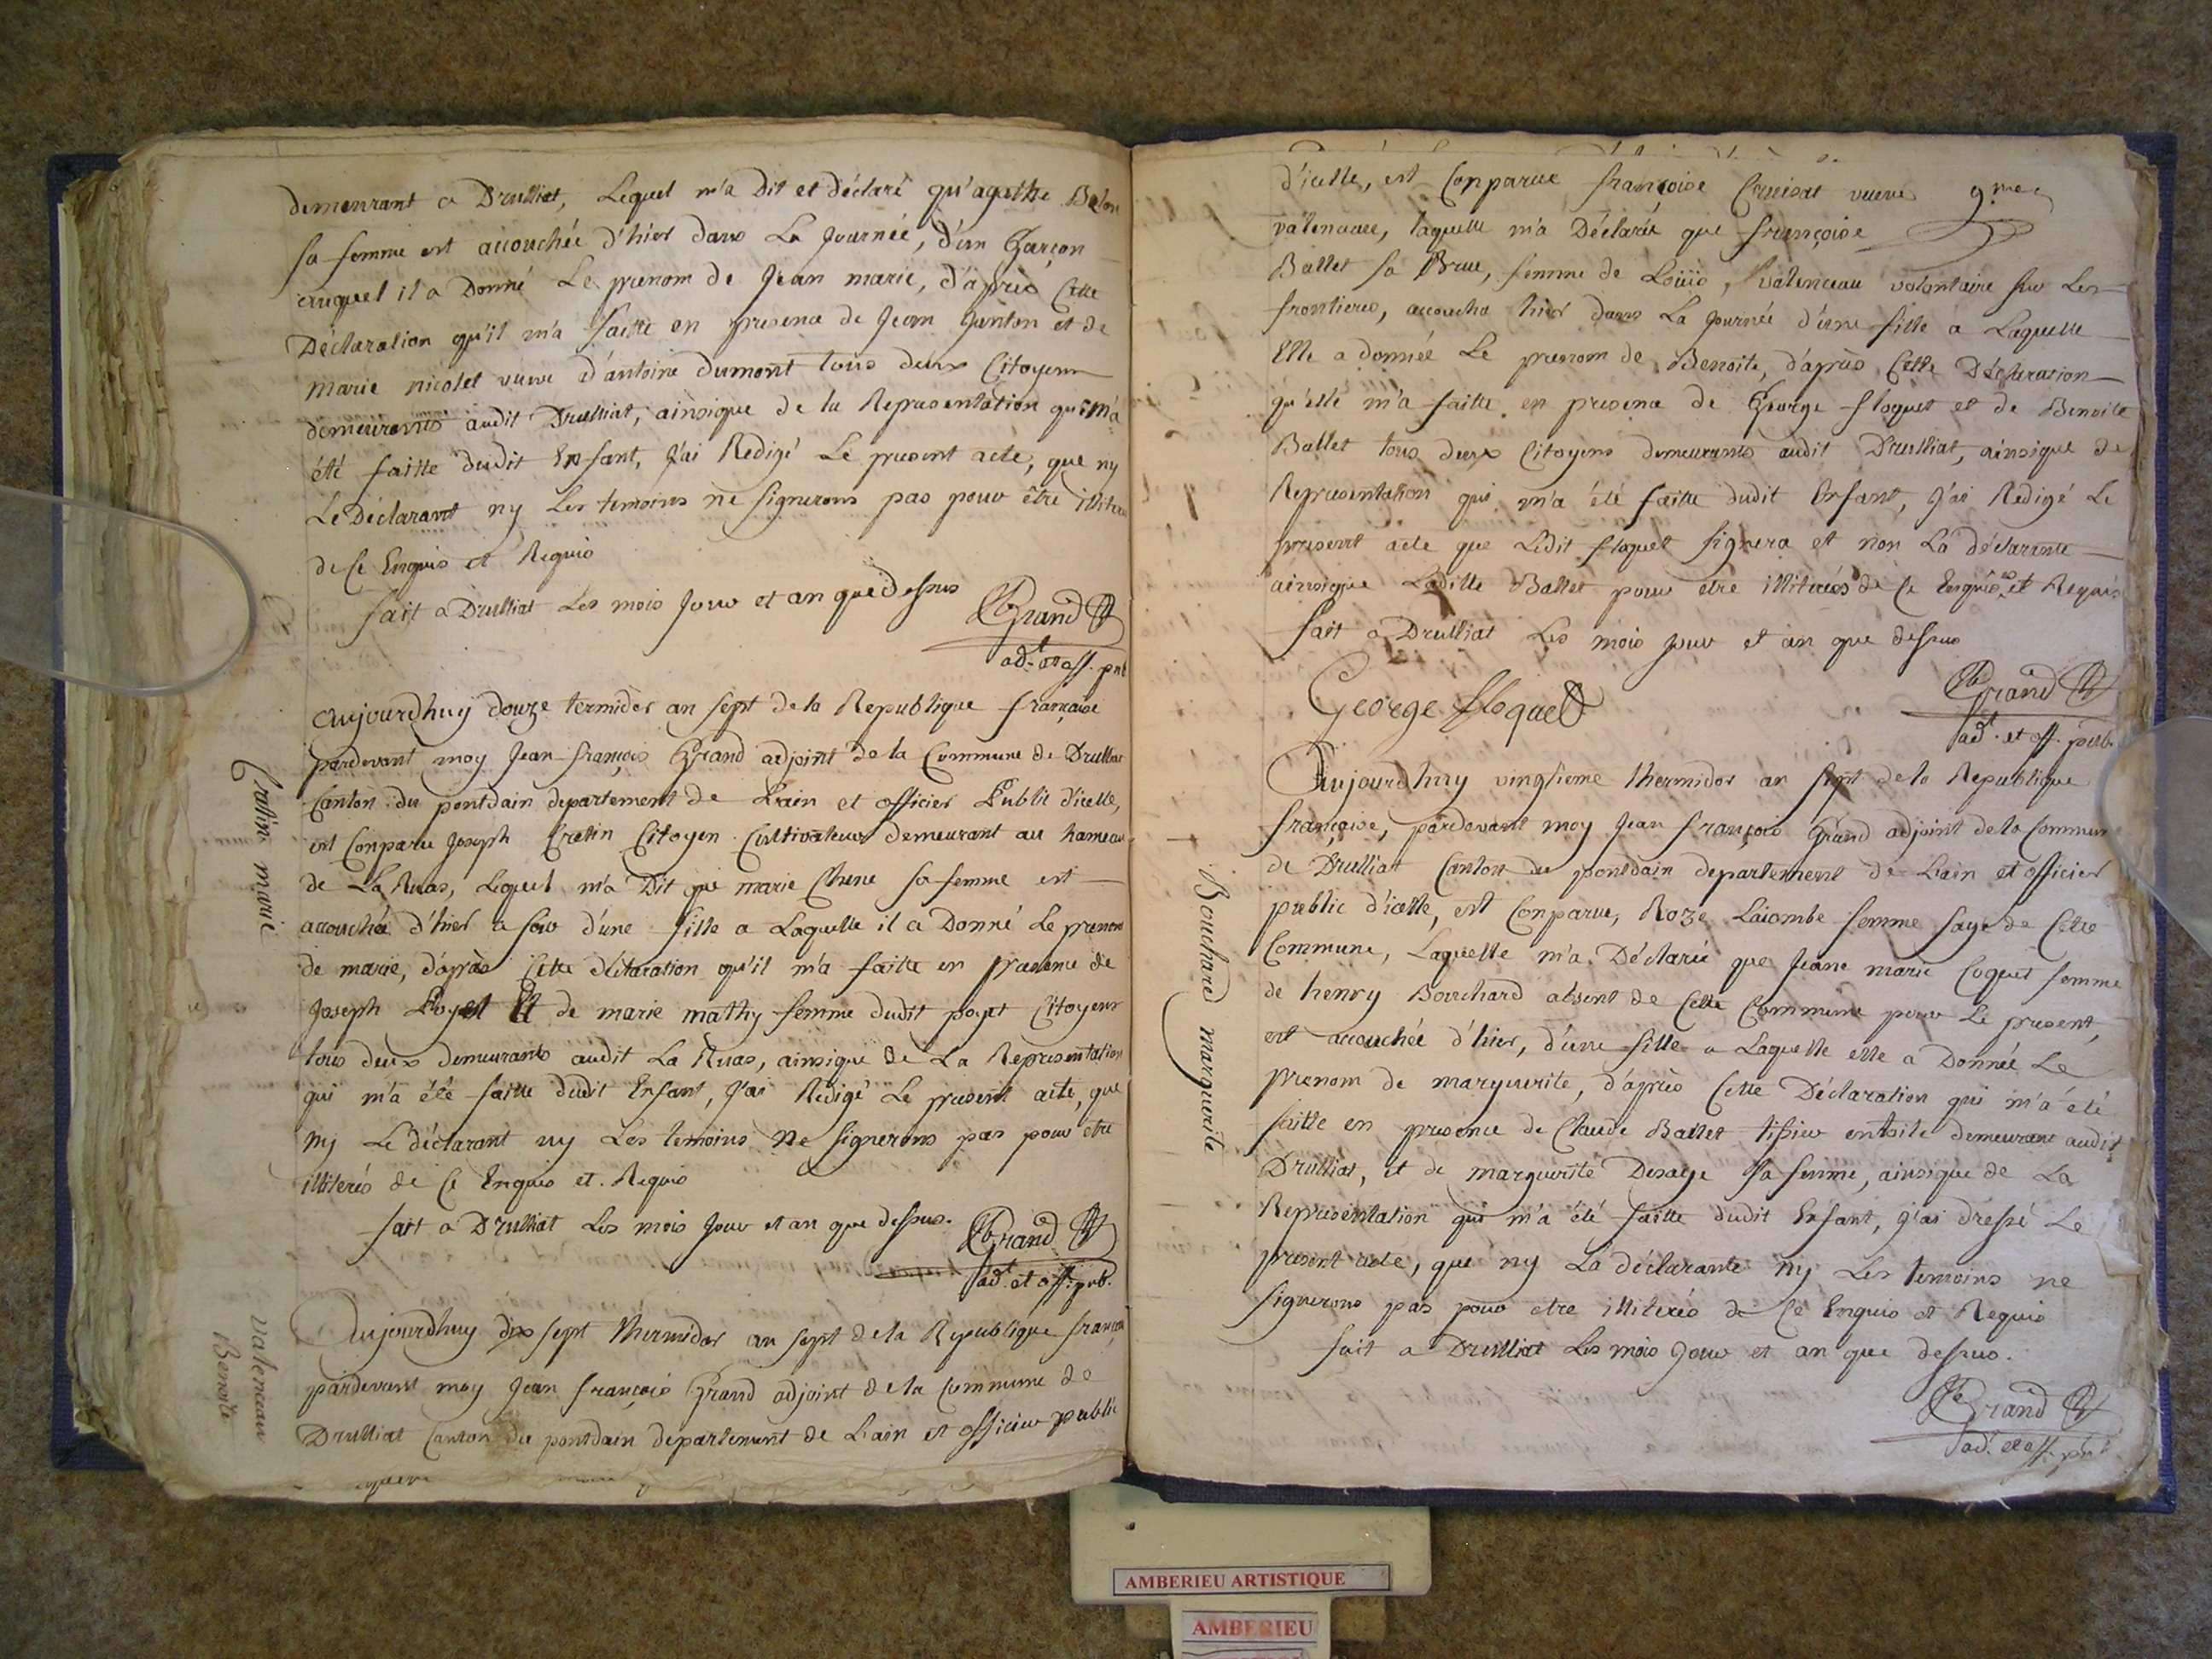 demeurant a Drulliat, Lequel m'a Dit et déclaré qu'agathe
sa femme est accouchée d'hier dans La Journée, d'un Garçon
auquel il a Donné Le prenom de Jean marie, d'après Cette
Déclaration qu'il m'a faitte en presence de Jean Janton et de
marie nicolet veuve d'antoine dumont tous deux Citoyens
demeurants audit Drulliat, ainsique de la Representation qui m'a
été faitte dudit Enfant, J'ai Redigé Le present acte, que ny
Le Déclarant ny Les temoins ne signerons pas pour être
de Ce Enquis et Requis
fait a Drulliat Les mois Jour et an que dessus
Grand
adt. et off. pub
Cretin marie
aujourdhuy douze termidor an sept de la Republique francaise
pardevant moy Jean françois Grand adjoint de la Commune de Drulliat
Canton du pontdain departement de Lain et officier Public dicelle,
est Conparu Joseph Cretin Citoyen Cultivateur demeurant au hameau
de La Ruas, Lequel m'a Dit que marie Chene sa femme est
accouchée d'hier a soir d'une fille a Laquelle il a Donné Le prenom
de marie, d'après Cette déclaration qu'il m'a faitte en presence de
Joseph Poyet Et de marie mathy femme dudit poyet Citoyens
tous deux demeurants audit La Ruas, ainsique de La Representation
qui m'a été faitte dudit Enfant, J'ai Redigé Le present acte, que
ny Le déclarant ny Les temoins ne signerons pas pour etre
illiterés de Ce Enquis et Requis
fait a Drulliat Les mois Jour et an que dessus.
Grand
adt. et off. pub.
valenceau
Benoite
Aujourdhuy dix sept thermidor an sept de la Republique
pardevant moy Jean françois Grand adjoint de la Commune de
Drulliat Canton du pontdain departement de Lain et officier public
d'icelle, est Conparue françoise veuve
9.me
valenceau, laquelle m'a Déclarée que françoise
Ballet sa Brue, femme de Louis, valenceau volontaire sur Les
frontieres, accoucha hier dans La Journée d'une fille a Laquelle
Elle a donnée Le prenom de Benoite, d'après Cette Déclaration
qu'elle m'a faitte en presence de George floquet et de Benoite
Ballet tous deux Citoyens demeurants audit Drulliat, ainsique de
Representation qui m'a été faitte dudit Enfant, J'ai Redigé Le
present acte que Ledit floquet signera et non La déclarante
ainsique Laditte Ballet pour etre illiterées de Ce Enquis et Requis
fait a Drulliat Les mois Jour et an que dessus
George floquet
Grand
adt. et off. pub.
Bouchard marguerite
Aujourdhuy vingtieme thermidor an sept de la Republique
française, pardevant moy Jean françois Grand adjoint de la Commune
de Drulliat Canton du pontdain departement de Lain et officier
public d'icelle, est Conparue, Roze Lacombe femme sage de Cette
Commune, Laquelle m'a Déclarée que Jeane marie Coquet femme
de henry Bouchard absent de Cette Commune pour Le present,
est accouchée d'hier, d'une fille a Laquelle elle a Donnée Le
prenom de marguerite, d'après Cette Déclaration qui m'a été
faitte en presence de Claude Ballet tissier entoile demeurant audit
Drulliat, et de marguerite Desaye sa femme, ainsique de La
Representation qui m'a été faitte dudit Enfant, j'ai dressé Le
present acte, que ny La déclarante ny Les temoins ne
signerons pas pour etre illiterés de Ce Enquis et Requis
fait a Drulliat Les mois Jour et an que dessus.
Grand
adt. et off. pub
AMBERIEU ARTISTIQUE
AMBERIEU